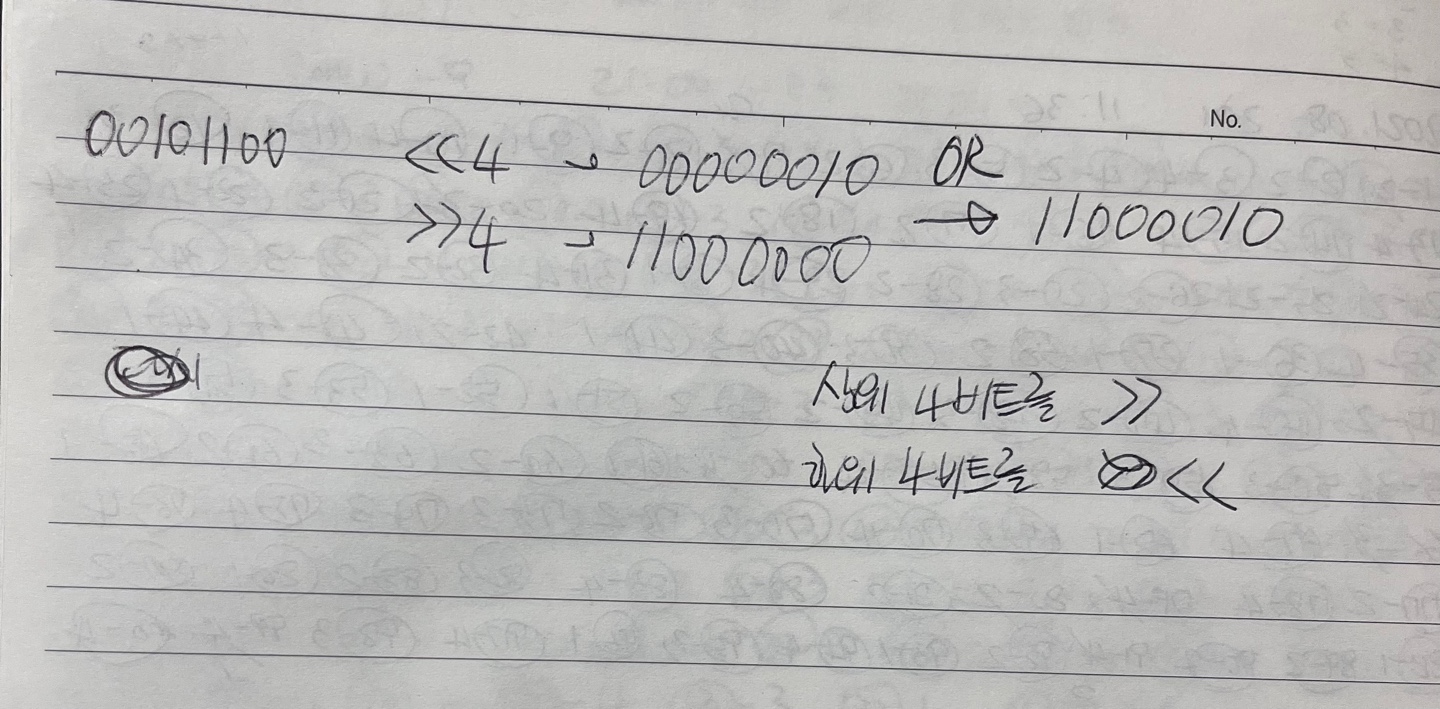 No.
00101100 <<4 → 00000010 OR
>>4 → 11000000 → 11000010
상위 4비트를 >>
하위 4비트를 <<